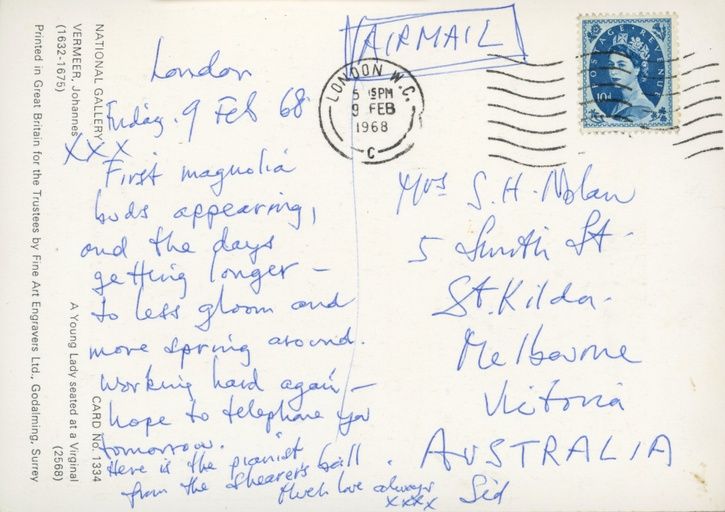 AIRMAIL
London
Friday. 9 Feb 68
xxx
First magnolia
buds appearing,
and the days
getting longer –
to less gloom and
more spring around.
Working hard again –
hope to telephone you
tomorrow.
Here is the pianist
from the Shearers ball.
Much love always
xxxx Sid
Mrs S. H. Nolan
5 Smith St.
St. Kilda.
Melbourne
Victoria
AUSTRALIA
LONDON W.C.
5 15PM
9 FEB
1968
C
POSTAGE REVENUE
10D
NATIONAL GALLERY
VERMEER, Johannes
(1632-1675)
A Young Lady seated at a Virginal
(2568)
CARD No. 1334
Printed in Great Britain for the Trustees by Fine Art Engravers Ltd., Godalming, Surrey